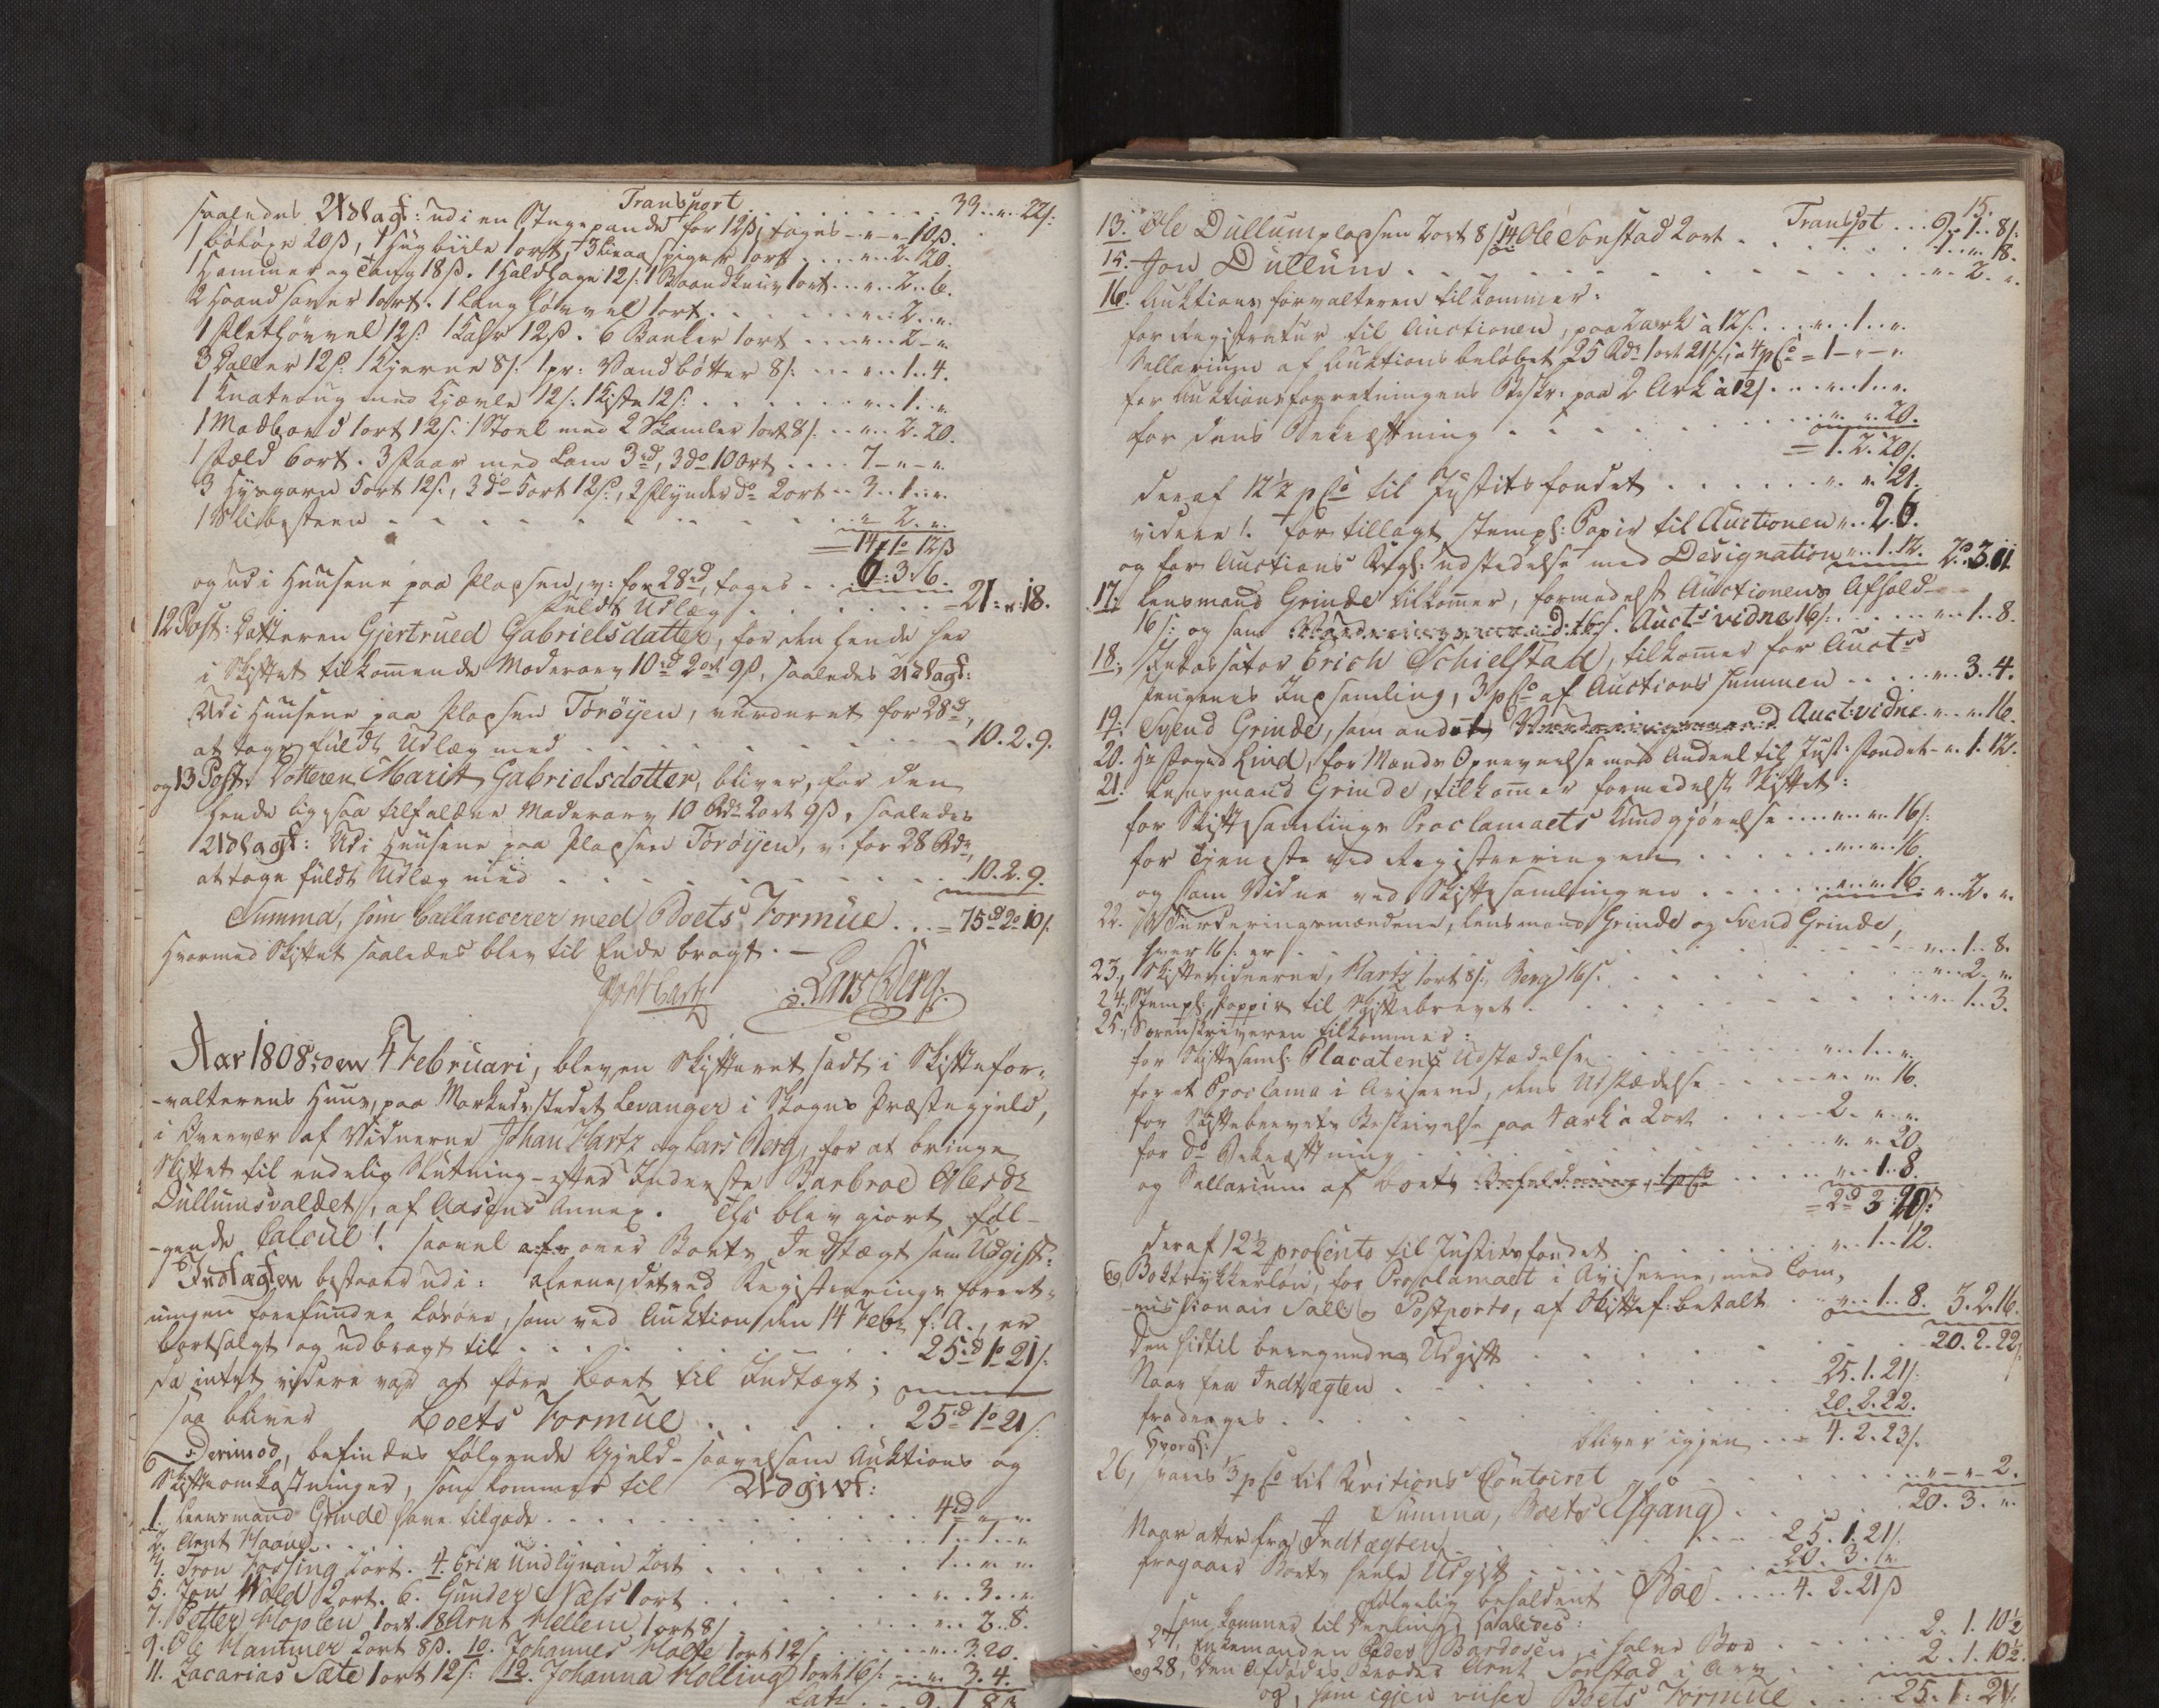 Transport . . . 33 .. " .. 22 s:
saaledes Udlagt: udi en Stegepande for 12 s, tages - " - 10 s.
1 Hammer og Tang 18 s. 1 12 s. 1 Baandkniv 1 ort . . . " .. 2 .. 6.
2 Haandsaver 1 ort. 1 Langhövvel 1 ort . . . " .. 2 .. "
1 Sletthövvel 12 s: 12 s. 6 1 ort . . . " .. 2 - "
3 12 s. 1 Kjerne 8 s. 1 pr: Vandbötter 8 s: . . . " .. 1 .. 4.
1 med Kjævle 12 s. 1 Kiste 12 s: . . . " .. 1 .. "
1 Madbord 1 ort 12 s. 1 Stoel med 2 Skamler 1 ort 8 s. . . " .. 2 .. 20.
1 Fæld 6 ort. 3 Faar med Lam 3 rd, 3 do 10 ort . . . . 7 - " - "
3 5 ort 12 s., 2 do 5 ort 12 s., 2 do 2 ort .. 3 .. 1 .. "
1 Slibesteen . . . " 2. "
= 14 - 1 o 12 s
og udi Huusene paa Pladsen, v: for 28 rd, tages . . 6 : 3 : 6.
fuldt Udlæg . . . = 21 : " : 18.
12 Post: Datteren Gjertrued Gabrielsdatter, for den hende her
i Skiftet tilkomende Mødrearv 10 rd 2 ort 9 s, saaledes Udlagt:
Udi Huusene paa Pladsen Torøyen, vurderet for 28 rd,
at tage fuldt Udlæg med . . . 10 . 2 . 9.
og 13 Post: Dotteren Marit Gabrielsdotter, bliver, for den
hende ligesaa tilfaldne Mødrearv 10 Rdr 2 ort 9 s, saaledes
Udlagt: Udi Huusene paa Pladsen Torøyen, v: for 28 Rdr,
at tage fuldt Udlæg med . . . 10 . 2 . 9.
Summa, som ballancerer med Boets Formue . . = 75 rd 2 o 10 s.
Hvormed Skiftet saaledes blev til Ende bragt. -
Lars Berg.
Aar 1808, den 4 Februari, blev en Skifteret sadt i Skiftefor-
-valterens Huus, paa Markedsstedet Levanger i Skogns Præstegjeld,
i Overvær af Vidnerne Johan Hartz og Lars Berg, for at bringe
Skiftet til endelig Slutning - efter Inderste Barbroe Olesdr
Dullumsvaldet, af Aasens Annex. Thi blev giort føl-
-gende Calcul! saavel over Boets Indtægt som Udgift:
Indtægten bestaaer udi: det ved Registerings forret-
ningen forefundne Løsøre, som ved Auktion den 14 Febr f: A., er
bortsolgt og udbragt til . . . 25 rd 1 o 21 s:
da intet videre var at føre Boet til Indtægt;
saa bliver Boets Formue . . . 25 rd 1 o 21 s:
Derimod, befindes følgende Gjeld - saavelsom Auktions og
Skifteomkostninger, som kommer til Udgivt:
1. Leensmand Grinde have tilgode . . . 4 rd " "
2. Arnt Haave . . . 1 .. 1 .. "
3. Tron 2 ort. 4. Erik 2 ort . . . 1 .. " "
5. Jon Wold 2 ort. 6. Gunder Næss 1 ort . . . " .. 3 .. "
7. Petter Hoplen 1 ort. 8 Arnt Hellem 1 ort 8 s . . . " .. 2 .. 8.
9. Ole Hammer 2 ort 8 s. 10. Johannes 1 ort 12 s . . . " .. 3. 20.
11. Zacarias Sæte 1 ort 12 s: 12. Johanna Holling 1 ort 16 s: . . " .. 3 . 4.
Lats . . 9 . 1 8 s
15.
Transpot . . . 9 .. 1 .. 8 s:
13. Ole Dullumpladsen 2 ort 8 s 14 Ole Sonstad 2 ort . . . 1 .. " 8.
15. Jon Dullum . . . " .. 2. "
16. Auktions forvalteren tilkommer:
for Registratur til Auctionen, paa 2 ark a 12 s. . . . " .. 1 .. "
Sallarium af Auktions beløbet 25 Rdr 1 ort 21 s, a 4 p Co = 1 - " - "
for Auktionsforretningens Beskr: paa 2 Ark a 12 s . . . " .. 1 .. "
for dens Bekræftning . . . " " 20.
= 1 . 2 . 20 s.
deraf 12 1/2 p Co til Justitsfondet . . . " " 21.
videre !. for tillagt stempl: Papir til Auctionen " .. 2. 6.
og for Auctions udstædelse med Designation " .. 1. 12. 2. 3. 11
17. Lensmand Grinde tilkomer, formedelst Auctionens Afhold-
16 s: og som Auct: vidne 16 s: . . . " .. 1 .. 8.
18. Inkassator Erich Schielstad, tilkomer for Auct:
pengenes Indsamling, 3 p Co af Auctions summen . . . " .. 3 .. 4.
19. Svend Grinde, som andet Auct: vidne . " .. " 16.
20. Hr Foged Lind, for Mænds Opnevnelse med Andeel til Just: fondet - " . 1. 12.
21. Lensmand Grinde, tilkomer formedelst Skiftet:
for Skiftesamlings Proclamaets Kundgjørelse . . . " .. " 16 s:
for Tjeneste ved Registreringen . . . " .. " 16
og som Vidne ved Skiftesamlingen . . . " .. " 16. " .. 2. "
22. Vurderingsmændene, Lensmand Grinde og Svend Grinde,
hver 16 s: er . . . " .. 1 .. 8.
23., Skiftevidnerne, Hartz 1 ort 8 s, Berg 16 s. . . . " .. 2. "
24., Stempl: Pappir til Skiftebrevet . . . " .. 1 .. 3.
25., Sorenskriveren tilkommer:
for Skiftesaml: Placatens Udstædelse . . . " .. 1 .. "
for et Proclama i Aviserne, dens Udstædelse . . . " " 16.
for Skiftebrevets Beskrivelse paa 4 ark a 2 ort . . . 2. " .. "
for do Bekræftning . . . " " 20
og Sallarium af Boets . . . " .. 1 .. 8.
= 2 rd 3 : 20 s:
deraf 12 1/2 proCento til Justitsfondet . . . " .. 1 .. 12.
og Boktrykkerløn, for Proclamaet i Aviserne, med Com,
-missionair Sall: og Postporto, af Skiftef: betalt . . " .. 1 .. 8. 3. 2. 16.
Den hidtil beregnede Udgift . . . 20 . 2 . 22 s
Naar fra Indtægten . . . 25 . 1 . 21 s:
fradrages . . . 20 . 2 . 22.
bliver igjen . . = 4 . 2 . 23 s.
Hvoraf:
26, svares 1/3 p Co til Contoiret . . . " - " - 2.
Summa, Boets Afgang . . . 20 . 3 . "
Naar atter fra Indtægten . . . 25 . 1 . 21 s.
fragaaer Boets heele Udgift . . . 20 . 3 . "
følgelig beholdent Boe . . . . 4 . 2 . 21 s
som kommer til Deeling, saaledes:
27, Enkemanden Peder Bardosen, i halve Boe . . . 2 . 1 . 10 1/2
og 28, Den Afdødes Broder Arnt Sonstad i Arv . . . 2 . 1 . 10 1/2.
og, som igjen viiser Boets Formue . . . 25 . 1 . 21 s.